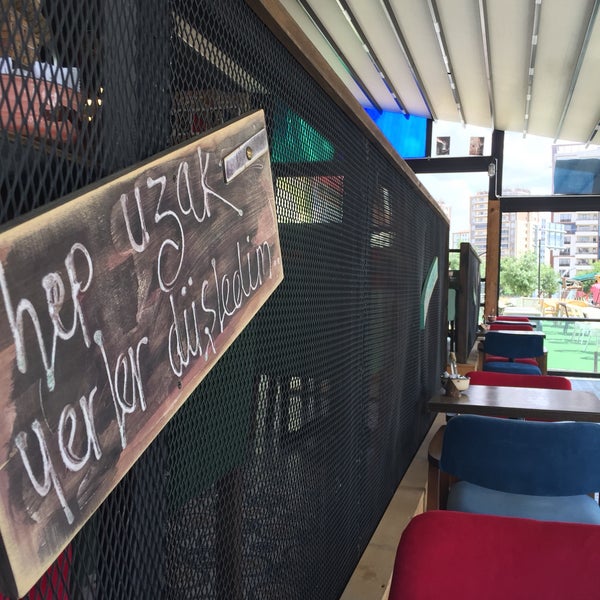 hep uzak
yerler düşledim